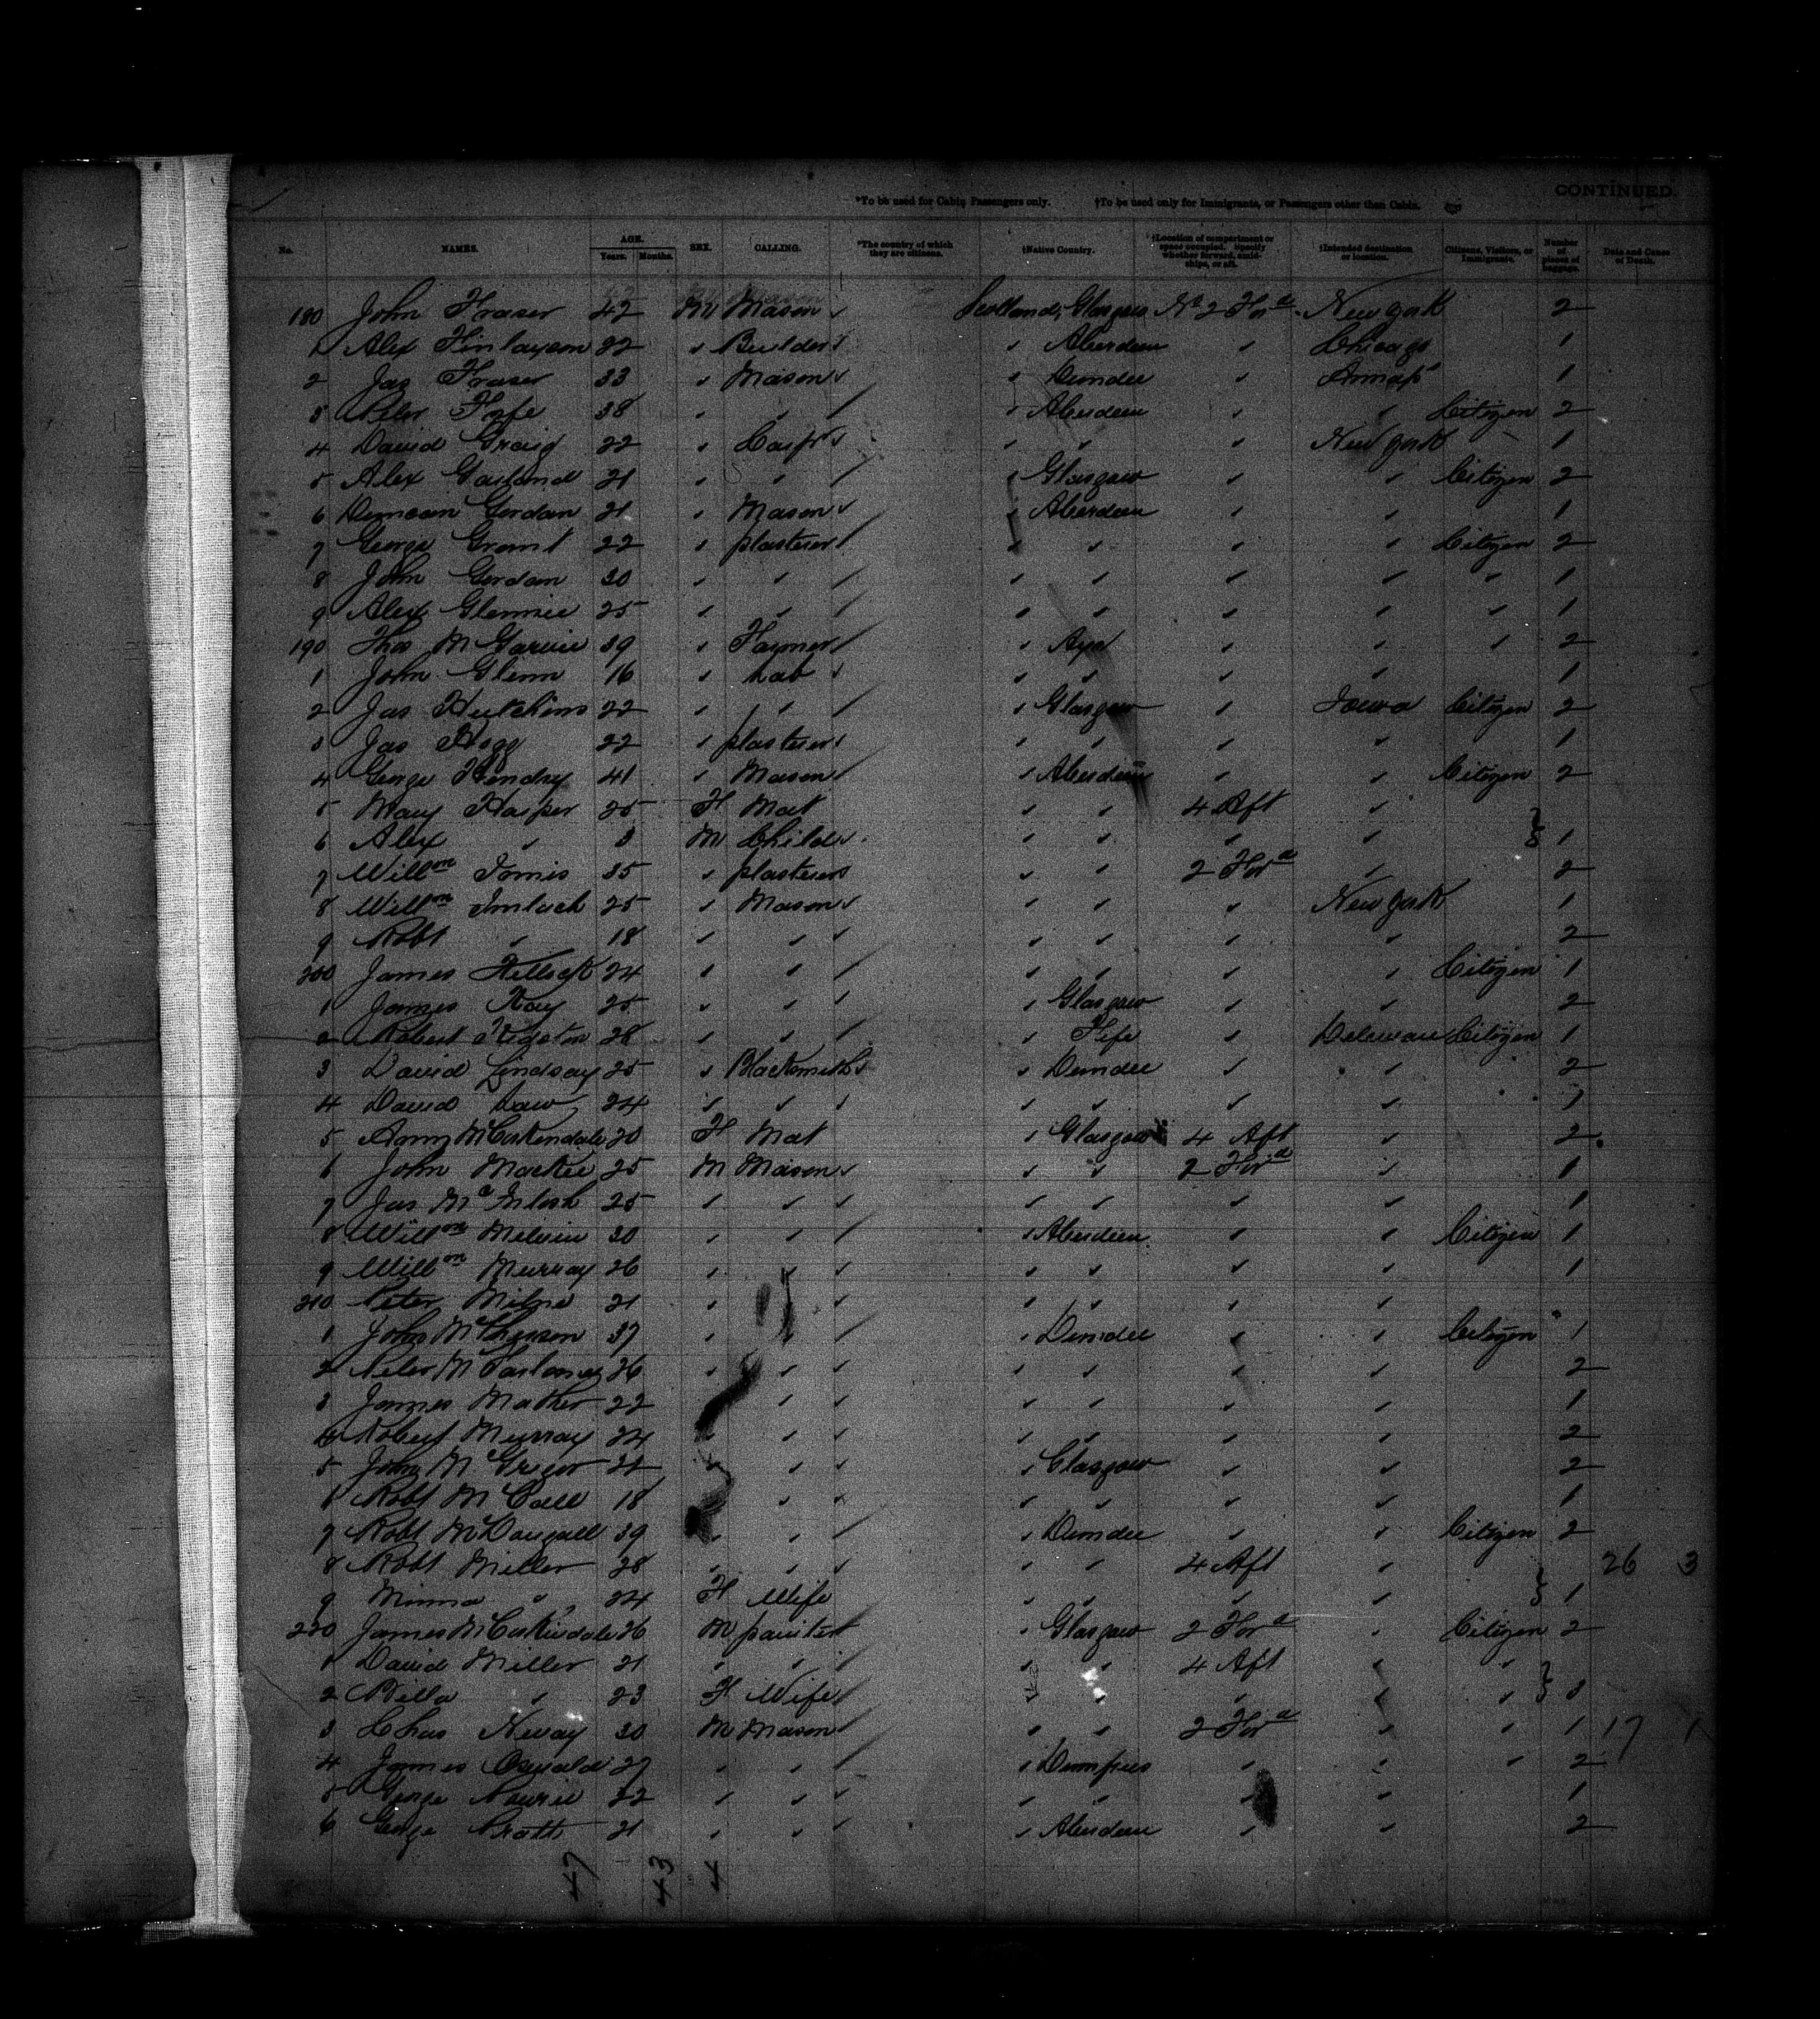 CONTINUED.
*To be used for Cabin Passengers only. †To be used only for Immigrants, or Passengers other than Cabin.
No. NAMES. AGE. Years. Months. SEX. CALLING. *The country of which they are citizens. †Native Country. †Location of compartment or space occupied. Specify whether forward, amidships, or aft. †Intended destination or location. Citizens, Visitors, or Immigrants. Number of pieces of baggage. Date and Cause of Death.
180 John Fraser 42 M Mason Scotland, Glasgow No 2 Ford New York 2
1 Alex Finlayson 22 Builder Aberdeen Chicago 1
2 Jas Fraser 33 Mason Dundee 1
3 Peter Fyfe 38 Aberdeen Citizen 2
4 David Greig 22 Carpr New York 1
5 Alex Garland 21 Glasgow Citizen 2
6 Duncan Gordan 21 Mason Aberdeen 1
7 George Grant 22 plasterer Citizen 2
8 John Gordan 30 1
9 Alex Glennie 25 1
190 Thos McGarvie 39 Farmer Ayr 2
1 John Glenn 16 Lab 1
2 Jas Hutchins 22 Glasgow Iowa Citizen 2
3 Jas Hogg 22 plasterer 1
4 George Hendry 41 Mason Aberdeen Citizen 2
5 Mary Harper 25 F Mat 4 Aft
6 Alex 3 M Child 1
7 Willm 35 plasterer 2 Ford 2
8 Willm Imlach 25 Mason New York 1
9 Robt 18 2
200 James 24 Citizen 1
1 James Kay 25 Glasgow 2
2 Robert 28 Fife Deleware Citizen 1
3 David Lindsay 25 Blacksmith Dundee 2
4 David Law 24 1
5 Amy McCorkindale 20 F Mat Glasgow 4 Aft 2
6 John Mackie 25 M Mason 2 Ford 1
7 Jas McIntosh 25 1
8 Willm Melvin 30 Aberdeen Citizen 1
9 Willm Murray 26 1
210 Peter Milne 21
1 John McPherson 37 Dundee Citizen 1
2 Peter 26 2
3 James Mather 22 1
4 Robert Murray 24 2
5 John McGrew 21 Glasgow 2
6 Robt McCall 18 1
7 Robt McDougall 39 Dundee Citizen 2
8 Robt Miller 28 4 Aft 26 3
9 Minna 24 F Wife 1
220 James McCorkindale 26 M painter Glasgow 2 Ford Citizen 2
1 David Miller 21 4 Aft
2 Bella 23 F Wife 3
3 Chas 30 M Mason 2 Ford 1 17 1
4 James Oswald 27 Dumfries 2
5 George 22 1
6 George Pratt 21 Aberdeen 2
47 43 4